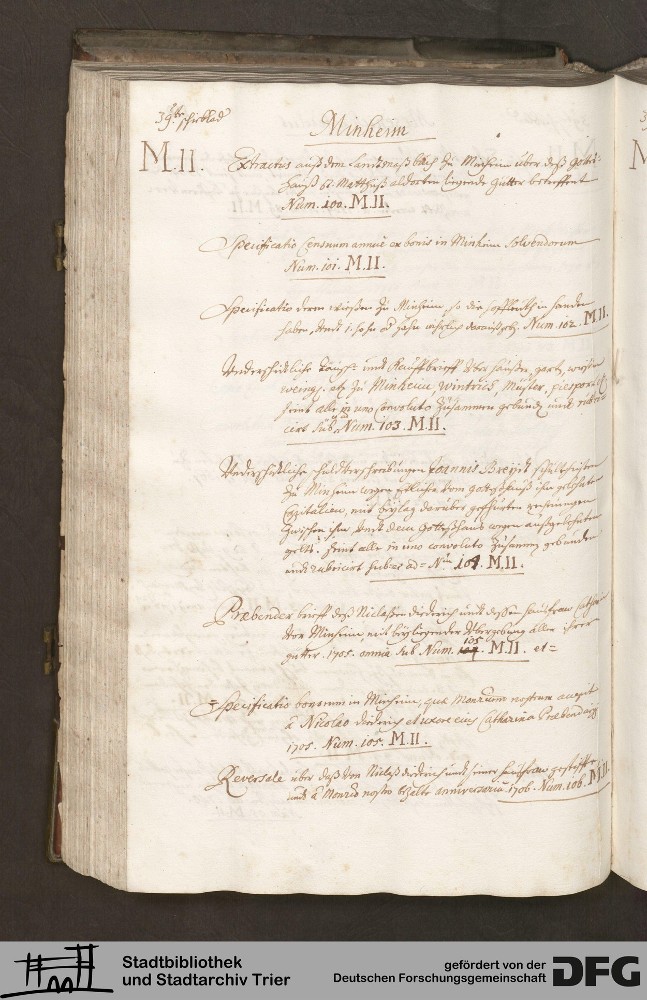 39te schirblad
Minheim
M.II. Extractus auß dem Landtmaß büch zu Minheim über deß Gotts-
hauß St. Matthiaß aldorten liegende gutter betreffent
Num. 100. M.II.
Specificatio Censuum annue ex bonis in Minheim solvendorum
Num. 101. M.II.
Specificatio deren wießen zu Minheim, so die hoffleuth in handen
haben, undt Num. 102. M.II.
Underschidtliche Tausch- undt Kauffbrieff über häußer, gartz, wießen
weing. etc zu Minheim, Wintrich, Müster, piesport etc
seint alle in uno Convoluto zusammen gebunden undt rubri-
cirt sub Num. 103. M.II.
Underschidtliche schuldtverschreibungen Joannis Breyidt schultheißen
zu Minheim wegen etlicher vom gottshauß ihm gelehnter
Capitalien, mit beylag darüber geführten rechnungen
zwischen ihm undt dem Gottshaus wegen aufgelehnten
gelts. seint alle in uno convoluto zusamen gebunden
undt rubricirt sub Nro 104. M.II.
Præbender brieff deß Niclaßen diederich undt deßen haußfraw Cathar.
von Minheim mit beyliegender übergebung aller ihrer
gütter. 1705. omnia sub Num. 105 M.II. et=
=Specificatio bonorum in Minheim, quæ Monrium nostrum accepit
à Nicolao diedrich et uxore eius Catharina Præbendariis
1705. Num. 105. M.II.
Reversale über daß von Niclaß diederich undt seiner haußfraw gestiffte
undt à Monrio nostro anniversaria 1706. Num. 106. M.II.
Stadtbibliothek
und Stadtarchiv Trier
gefördert von der
Deutschen Forschungsgemeinschaft
DFG